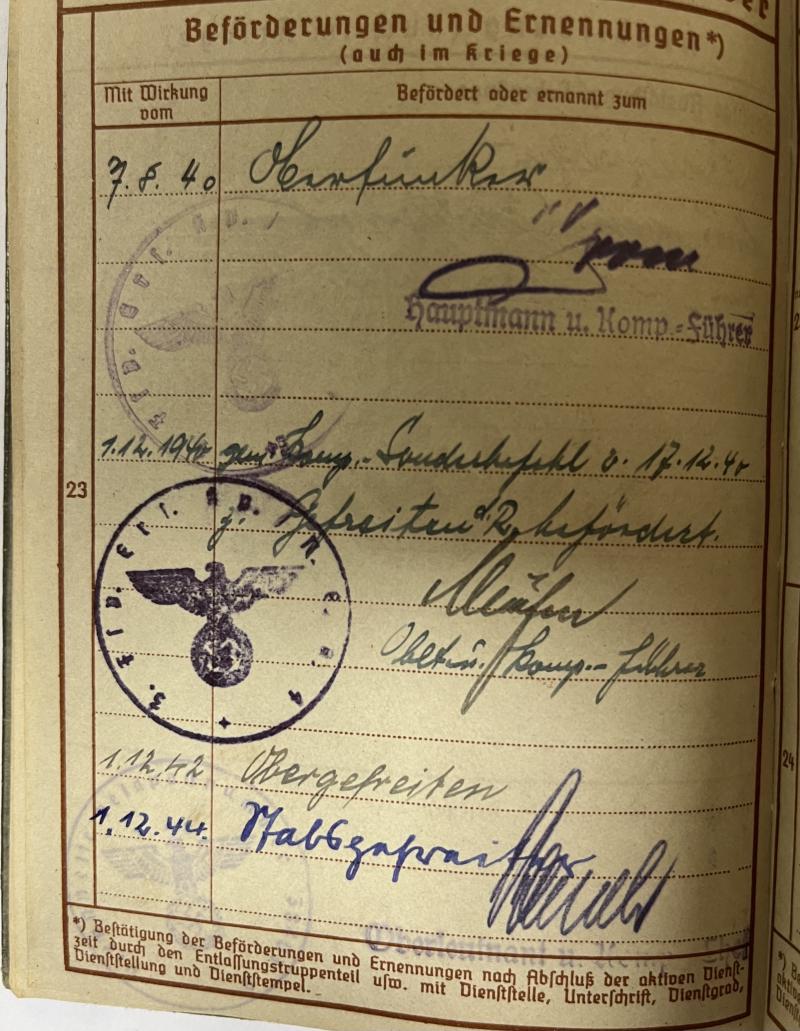 Beförderungen und Ernennungen*)
(auch im Kriege)
Mit Wirkung vom
Befördert oder ernannt zum
7. 8. 40 Oberfunker
Hauptmann u. Komp.-Führer
1.12.1940 gem. Komp.-Sonderbefehl v. 17.12.40
z. Gefreiten befördert.
Oblt. u. Komp.-Führer
23
3. Fld. Ers.
1.12.42 Obergefreiten
1.12.44. Stabsgefreiter
Oberleutnant u. Komp.
*) Bestätigung der Beförderungen und Ernennungen nach Abschluß der aktiven Dienst-
zeit durch den Entlassungstruppenteil usw. mit Dienststelle, Unterschrift, Dienstgrad,
Dienststellung und Dienststempel.
24